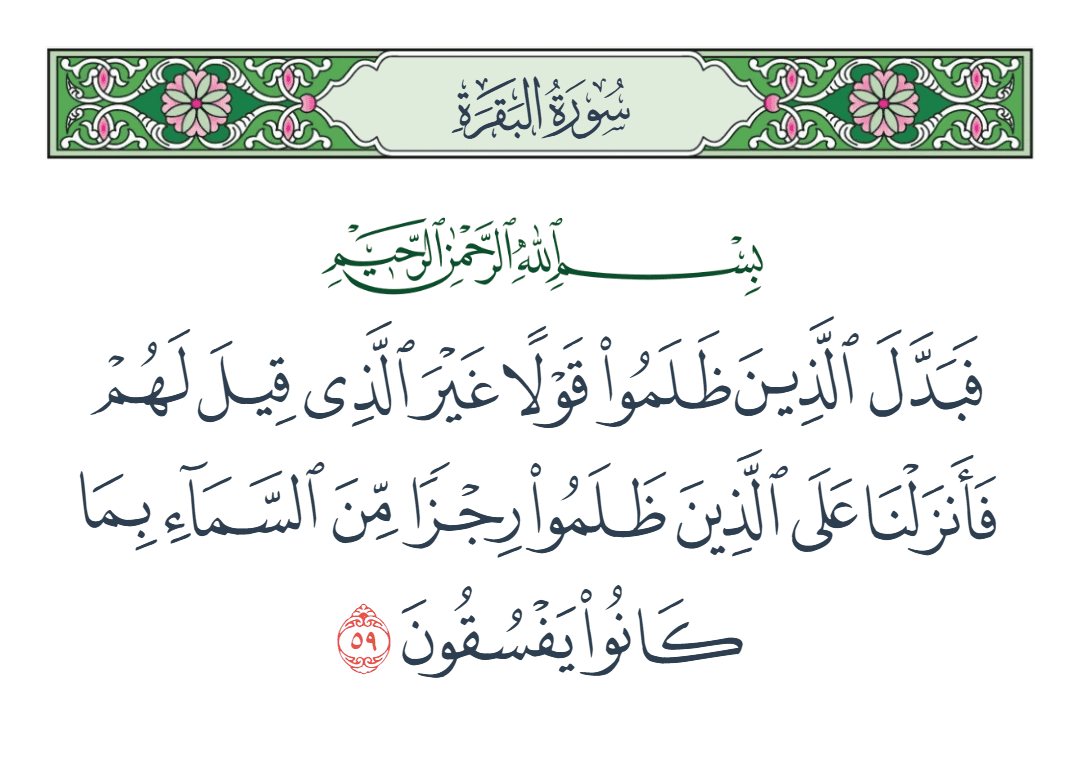 سُورَةُ البَقَرَةِ
بِسْمِ ٱللَّهِ ٱلرَّحْمَٰنِ ٱلرَّحِيمِ
فَبَدَّلَ ٱلَّذِينَ ظَلَمُوا۟ قَوْلًا غَيْرَ ٱلَّذِى قِيلَ لَهُمْ
فَأَنزَلْنَا عَلَى ٱلَّذِينَ ظَلَمُوا۟ رِجْزًا مِّنَ ٱلسَّمَآءِ بِمَا
كَانُوا۟ يَفْسُقُونَ ٥٩